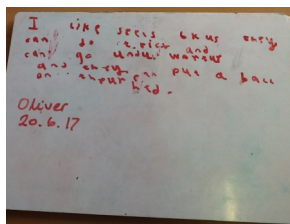 I like seels bkus they
can do a trick and
can go undur waturs
and they can put a ball
on there hed.
Oliver
20.6.17